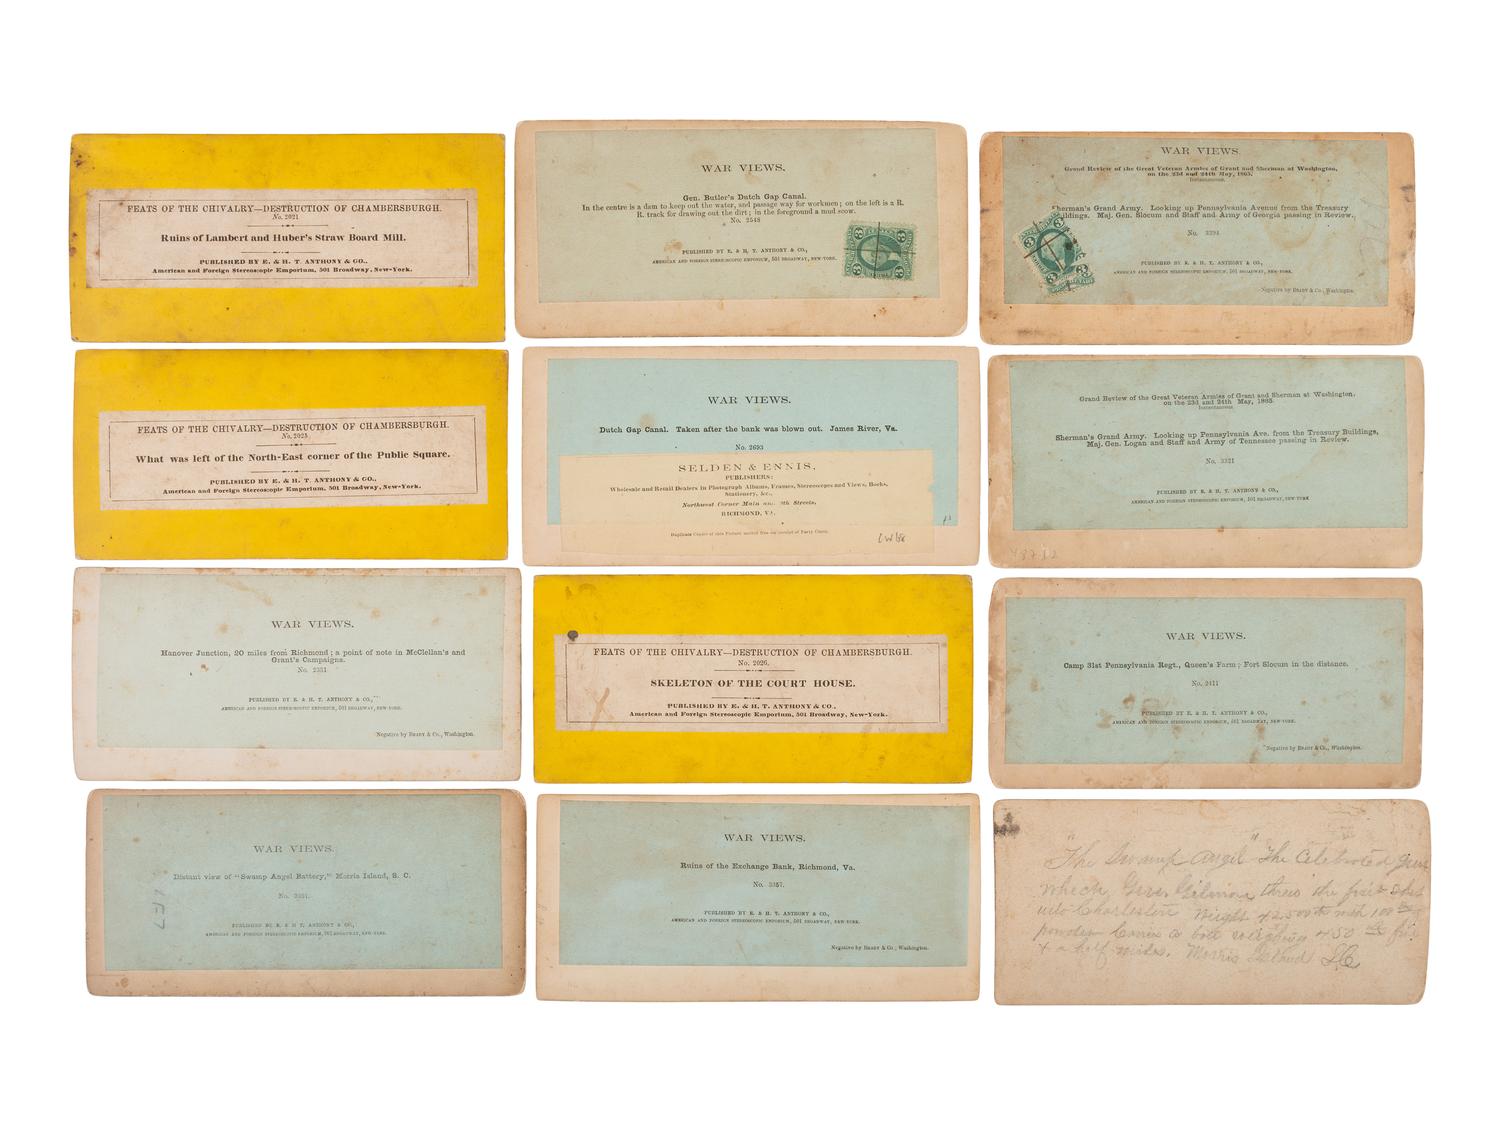 FEATS OF THE CHIVALRY—DESTRUCTION OF CHAMBERSBURGH.
No. 2021
Ruins of Lambert and Huber's Straw Board Mill.
PUBLISHED BY E. & H. T. ANTHONY & CO.,
American and Foreign Stereoscopic Emporium, 501 Broadway, New-York.
WAR VIEWS.
Gen. Butler's Dutch Gap Canal.
In the centre is a dam to keep out the water, and passage way for workmen; on the left is a R.
R. track for drawing out the dirt; in the foreground a mud scow.
No. 2548
PUBLISHED BY E. & H. T. ANTHONY & CO.,
AMERICAN AND FOREIGN STEREOSCOPIC EMPORIUM, 501 BROADWAY, NEW-YORK.
3 3
3 3
WAR VIEWS.
Grand Review of the Great Veteran Armies of Grant and Sherman at Washington,
on the 23d and 24th May, 1865.
Instantaneous.
Sherman's Grand Army. Looking up Pennsylvania Avenue from the Treasury
Buildings. Maj. Gen. Slocum and Staff and Army of Georgia passing in Review.
No.
PUBLISHED BY E. & H. T. ANTHONY & CO.,
AMERICAN AND FOREIGN STEREOSCOPIC EMPORIUM, 501 BROADWAY, NEW-YORK.
Negative by BRADY & Co., Washington.
FEATS OF THE CHIVALRY—DESTRUCTION OF CHAMBERSBURGH.
No. 2025
What was left of the North-East corner of the Public Square.
PUBLISHED BY E. & H. T. ANTHONY & CO.,
American and Foreign Stereoscopic Emporium, 501 Broadway, New-York.
WAR VIEWS.
Dutch Gap Canal. Taken after the bank was blown out. James River, Va.
No. 2693
SELDEN & ENNIS,
PUBLISHERS:
Wholesale and Retail Dealers in Photograph Albums, Frames, Stereoscopes and Views, Books,
Stationery, &c.,
Northwest Corner Main and 9th Streets,
RICHMOND, VA.
Duplicate Copies of this Picture mailed free on receipt of Forty Cents.
Grand Review of the Great Veteran Armies of Grant and Sherman at Washington.
on the 23d and 24th May, 1865.
Instantaneous
Sherman's Grand Army. Looking up Pennsylvania Ave. from the Treasury Buildings,
Maj. Gen. Logan and Staff and Army of Tennessee passing in Review.
No. 3321
PUBLISHED BY E. & H. T. ANTHONY & CO.,
AMERICAN AND FOREIGN STEREOSCOPIC EMPORIUM, 501 BROADWAY, NEW-YORK
WAR VIEWS.
Hanover Junction, 20 miles from Richmond; a point of note in McClellan's and
Grant's Campaigns.
No. 2331
PUBLISHED BY E. & H. T. ANTHONY & CO.,
AMERICAN AND FOREIGN STEREOSCOPIC EMPORIUM, 501 BROADWAY, NEW-YORK.
Negative by BRADY & Co., Washington.
FEATS OF THE CHIVALRY—DESTRUCTION OF CHAMBERSBURGH.
No. 2026.
SKELETON OF THE COURT HOUSE.
PUBLISHED BY E. & H. T. ANTHONY & CO.,
American and Foreign Stereoscopic Emporium, 501 Broadway, New-York.
WAR VIEWS.
Camp 31st Pennsylvania Regt., Queen's Farm; Fort Slocum in the distance.
No. 2411
PUBLISHED BY E. & H. T. ANTHONY & CO.,
AMERICAN AND FOREIGN STEREOSCOPIC EMPORIUM, 501 BROADWAY, NEW-YORK.
Negative by BRADY & Co., Washington.
WAR VIEWS.
Distant view of "Swamp Angel Battery," Morris Island, S. C.
No.
PUBLISHED BY E. & H. T. ANTHONY & CO.,
AMERICAN AND FOREIGN STEREOSCOPIC EMPORIUM, 501 BROADWAY, NEW-YORK.
WAR VIEWS.
Ruins of the Exchange Bank, Richmond, Va.
No. 3357.
PUBLISHED BY E. & H. T. ANTHONY & CO.,
AMERICAN AND FOREIGN STEREOSCOPIC EMPORIUM, 501 BROADWAY, NEW-YORK.
Negative by BRADY & Co., Washington.
"The Swamp Angel" The Celebrated gun
which Gen. Gilmore threw the first shot
into Charleston weight
powder
& a half miles. Morris Island SC